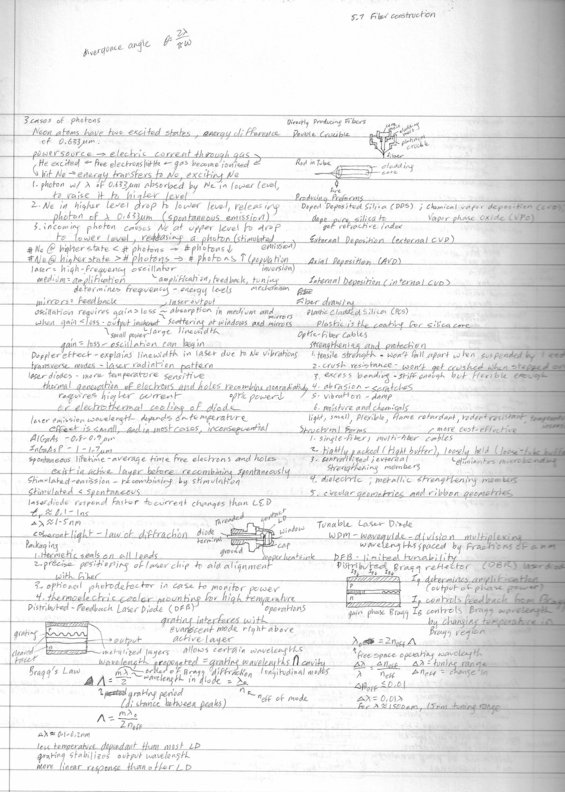 5.7 Fiber construction
Divergence angle θ = 2λ/8W
3 cases of photons
Neon atoms have two excited states, energy difference
of 0.633μm.
power source → electric current through gas
He excited ← free electrons hit He ← gas became ionized
hit Ne → energy transfers to Ne, exciting Ne
1. photon w/ λ of 0.633μm absorbed by Ne in lower level,
to raise it to higher level
2. Ne in higher level drop to lower level, releasing
photon of λ 0.633μm (spontaneous emission)
3. incoming photon causes Ne at upper level to drop
to lower level, releasing a photon (stimulated
emission)
#Ne @ higher state < # photons → # photons ↓
#Ne @ higher state > # photons → # photons ↑ (population
inversion)
laser = high-frequency oscillator
medium = amplification amplification, feedback, tuning
determines frequency - energy levels mechanism
mirrors = feedback laser output
oscillation requires gain > loss absorption in medium and
mirrors
when gain < loss - output incoherent scattering at windows and mirrors
small power large linewidth
gain = loss - oscillation can begin
Doppler effect - explains linewidth in laser due to Ne vibrations
transverse modes - laser radiation pattern
laser diodes - more temperature sensitive
thermal generation of electrons and holes recombine nonradiatively
requires higher current optic power↓
or electrothermal cooling of diode
laser emission wavelength depends on temperature
effect is small, and in most cases, inconsequential
AlGaAs - 0.8-0.9μm
InGaAsP - 1-1.7μm
spontaneous lifetime - average time free electrons and holes
exist in active layer before recombining spontaneously
Stimulated-emission - recombining by stimulation
stimulated < spontaneous
laser diode respond faster to current changes than LED
tr ≈ 0.1-1ns
Δλ ≈ 1-5nm
coherent light - law of diffraction
threaded contact LD
diode window
terminal
ground cap
copper heat sink
Packaging
1. Hermetic seals on all leads
2. precise positioning of laser chip to aid alignment
with fiber
3. optional photodetector in case to monitor power
4. thermoelectric cooler mounting for high temperature
operations
Distributed-Feedback Laser Diode (DFB)
grating interferes with
evanescent mode right above
grating → output active layer
cleaved facet metalized layers allows certain wavelengths
wavelength propagated = grating wavelengths ∩ cavity
longitudinal modes
Bragg's Law mλ order of Bragg diffraction
Λ = mλ/2 wavelength in diode = λ₀/n
n neff of mode
grating period
(distance between peaks)
Λ = mλ₀/2neff
Δλ ≈ 0.1-0.2nm
less temperature dependant than most LD
grating stabilizes output wavelength
more linear response than other LD
Directly Producing Fibers
Double Crucible
platinum
crucible
fiber
Rod in Tube
cladding
core
fire
Producing Preforms
Doped Deposited Silica (DDS) ; Chemical vapor deposition (CVD)
dope pure silica to Vapor phase Oxide (VPO)
get refractive index
External Deposition (external CVD)
Axial Deposition (AVD)
Internal Deposition (internal CVD)
Fiber drawing
Plastic Cladded Silica (PCS)
Plastic is the coating for silica core
Optic-Fiber Cables
Strengthening and protection
1. tensile strength - won't fall apart when suspended by 1 end
2. crush resistance - won't get crushed when stepped on
3. excess bending - stiff enough but flexible enough
4. abrasion - scratches
5. vibration - damp
6. moisture and chemicals
light, small, flexible, flame retardant, rodent resistant, temperature
Structural Forms more cost-effective
1. single-fiber; multi-fiber cables
2. tightly packed (tight buffer), loosely held (loose-tube buffer)
eliminates microbending
3. centralized; external
strengthening members
4. dielectric; metallic strengthening members
5. circular geometries and ribbon geometries
Tunable Laser Diode
WDM - waveguide-division multiplexing
wavelengths spaced by fractions of a nm
DFB - limited tunability
Distributed Bragg reflector (DBR) laser diode
Ig determines amplification
(output of phase power)
Ip controls feedback from Bragg
gain phase Bragg IB controls Bragg wavelength
by changing temperature in
Bragg region
λ₀ = 2neff Λ
free space operating wavelength
Δλ/λ = Δneff/neff Δλ = tuning range
Δneff = change in
Δneff ≤ 0.01
Δλ = 0.01λ
for λ ≈ 1500nm, 15nm tuning range